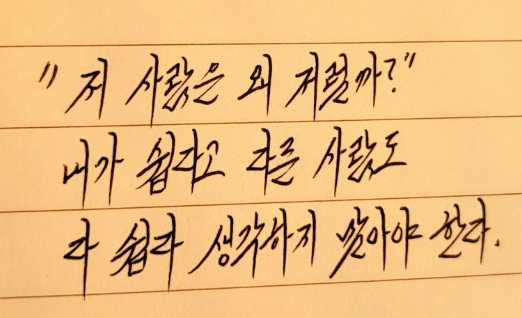 "저 사람은 왜 저럴까?"
내가 쉽다고 다른 사람도
다 쉽다 생각하지 말아야 한다.